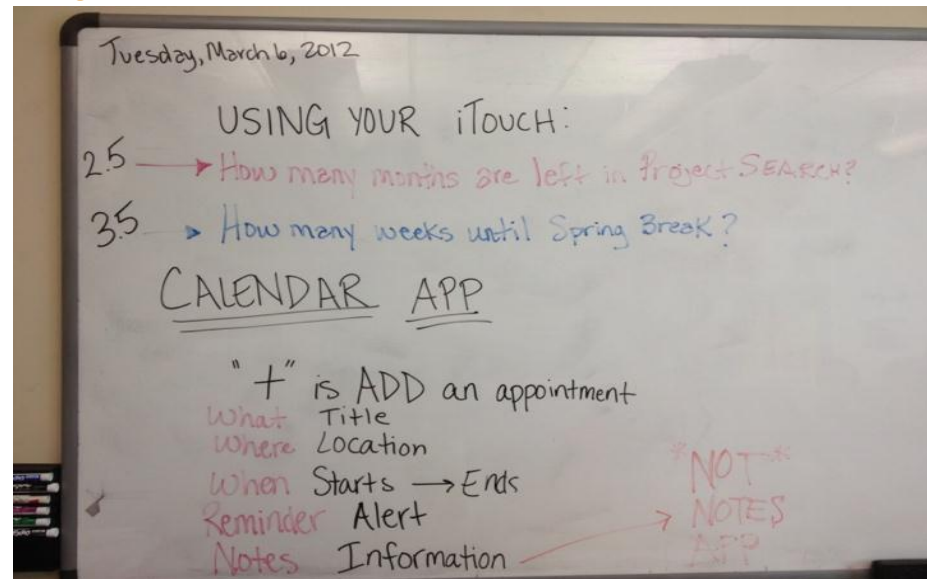 Tuesday, March 6, 2012
USING YOUR iTOUCH:
2.5 → How many months are left in Project SEARCH?
3.5 → How many weeks until Spring Break?
CALENDAR APP
"+" is ADD an appointment
What Title
Where Location
When Starts → Ends
Reminder Alert
Notes Information →
*NOT*
NOTES
APP